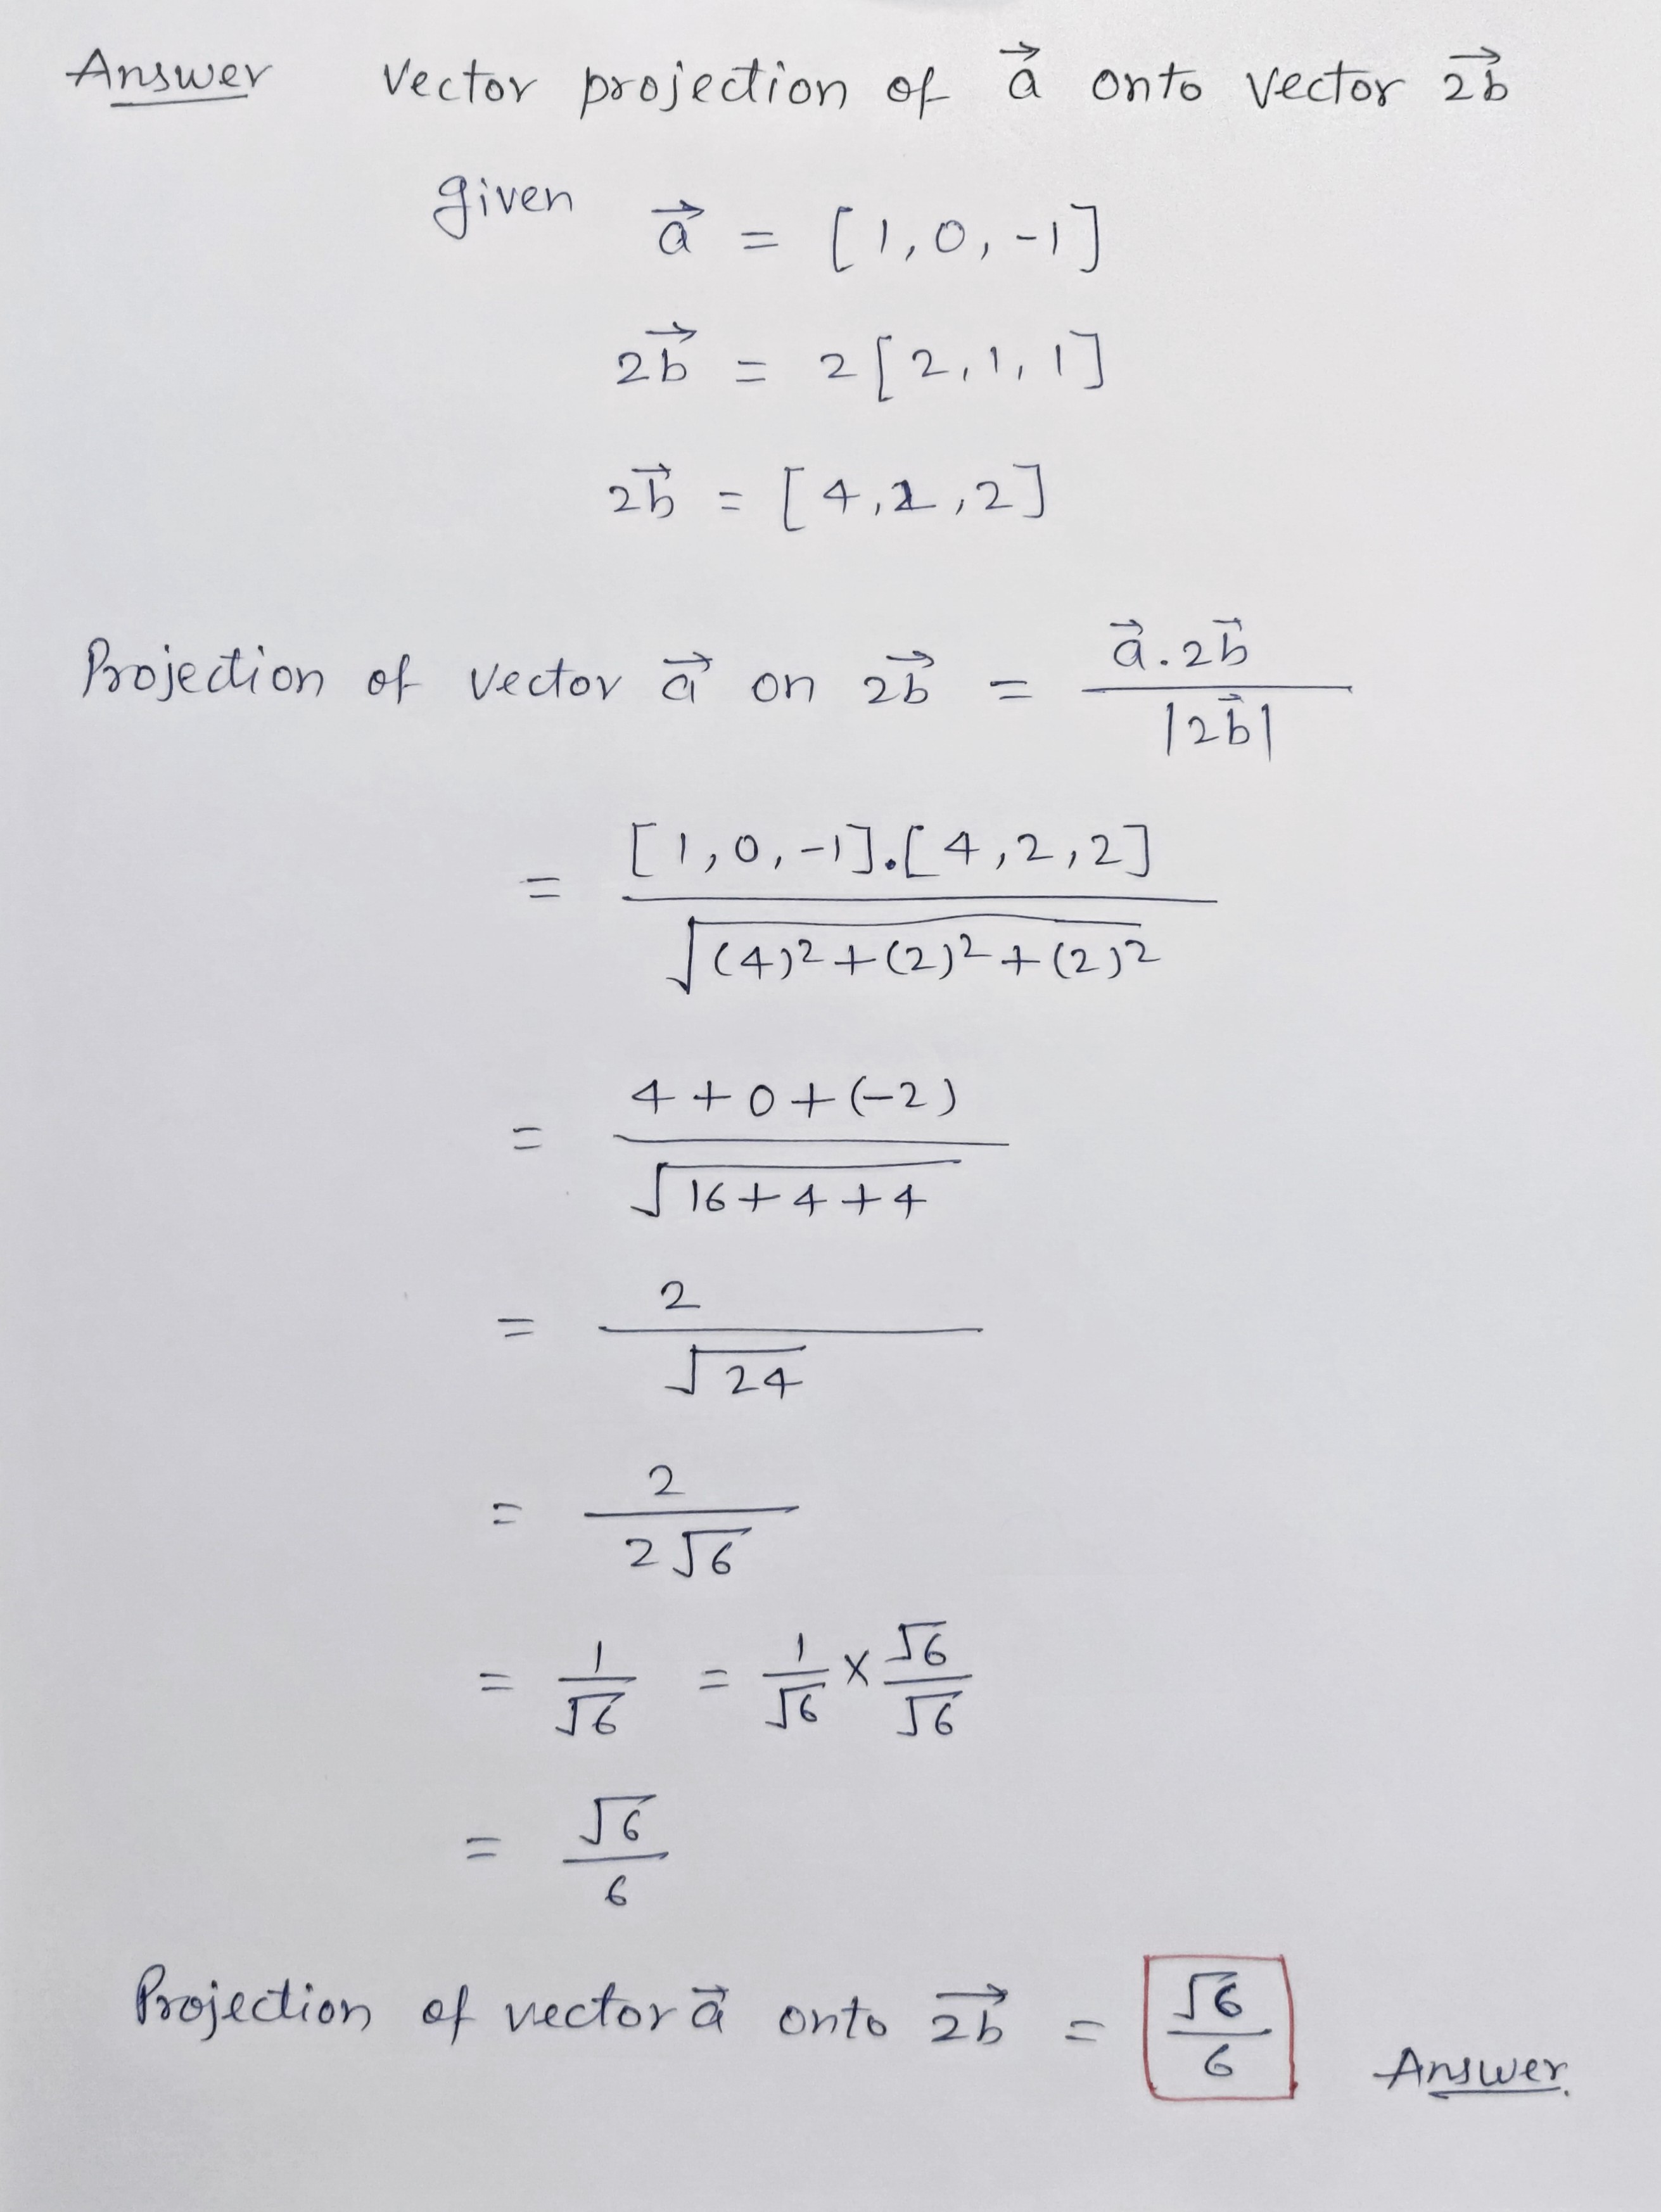 Answer Vector projection of a⃗ onto vector 2b⃗
given a⃗ = [1,0,-1]
2b⃗ = 2[2,1,1]
2b⃗ = [4,2,2]
Projection of vector a⃗ on 2b⃗ = a⃗.2b⃗ / |2b⃗|
= [1,0,-1].[4,2,2] / √((4)²+(2)²+(2)²)
= 4+0+(-2) / √(16+4+4)
= 2 / √24
= 2 / 2√6
= 1/√6 = 1/√6 × √6/√6
= √6 / 6
Projection of vector a⃗ onto 2b⃗ = √6 / 6 Answer.